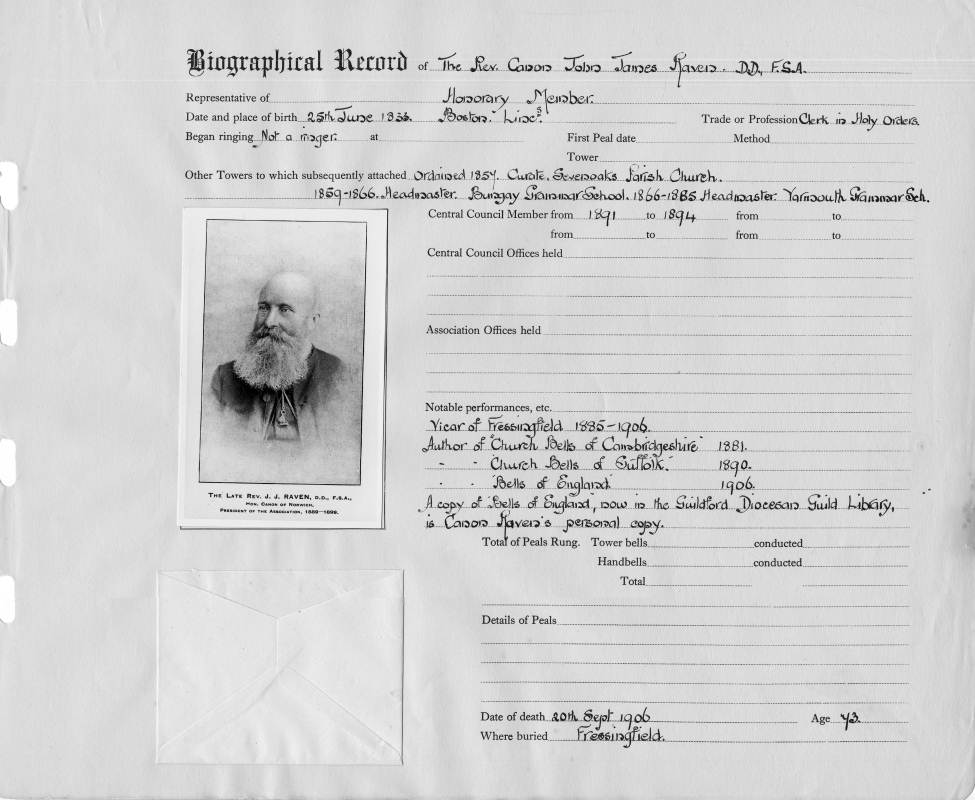 Biographical Record of The Rev. Canon John James Raven. D.D., F.S.A.
Representative of Honorary Member.
Date and place of birth 25th June 1833. Boston. Lincs. Trade or Profession Clerk in Holy Orders.
Began ringing Not a ringer. at First Peal date Method
Tower
Other Towers to which subsequently attached Ordained 1857. Curate. Sevenoaks Parish Church.
1859-1866. Headmaster. Bungay Grammar School. 1866-1885 Headmaster. Yarmouth Grammar Sch.
Central Council Member from 1891 to 1894 from to
from to from to
Central Council Offices held
Association Offices held
Notable performances, etc.
Vicar of Fressingfield 1885-1906.
Author of "Church Bells of Cambridgeshire" 1881.
" " "Church Bells of Suffolk." 1890.
" " "Bells of England" 1906.
A copy of "Bells of England, now in the Guildford Diocesan Guild Library,
is Canon Raven's personal copy.
THE LATE REV. J. J. RAVEN, D.D., F.S.A.,
HON. CANON OF NORWICH,
PRESIDENT OF THE ASSOCIATION, 1889—1898.
Total of Peals Rung. Tower bells conducted
Handbells conducted
Total
Details of Peals
Date of death 20th Sept 1906 Age 73.
Where buried Fressingfield.